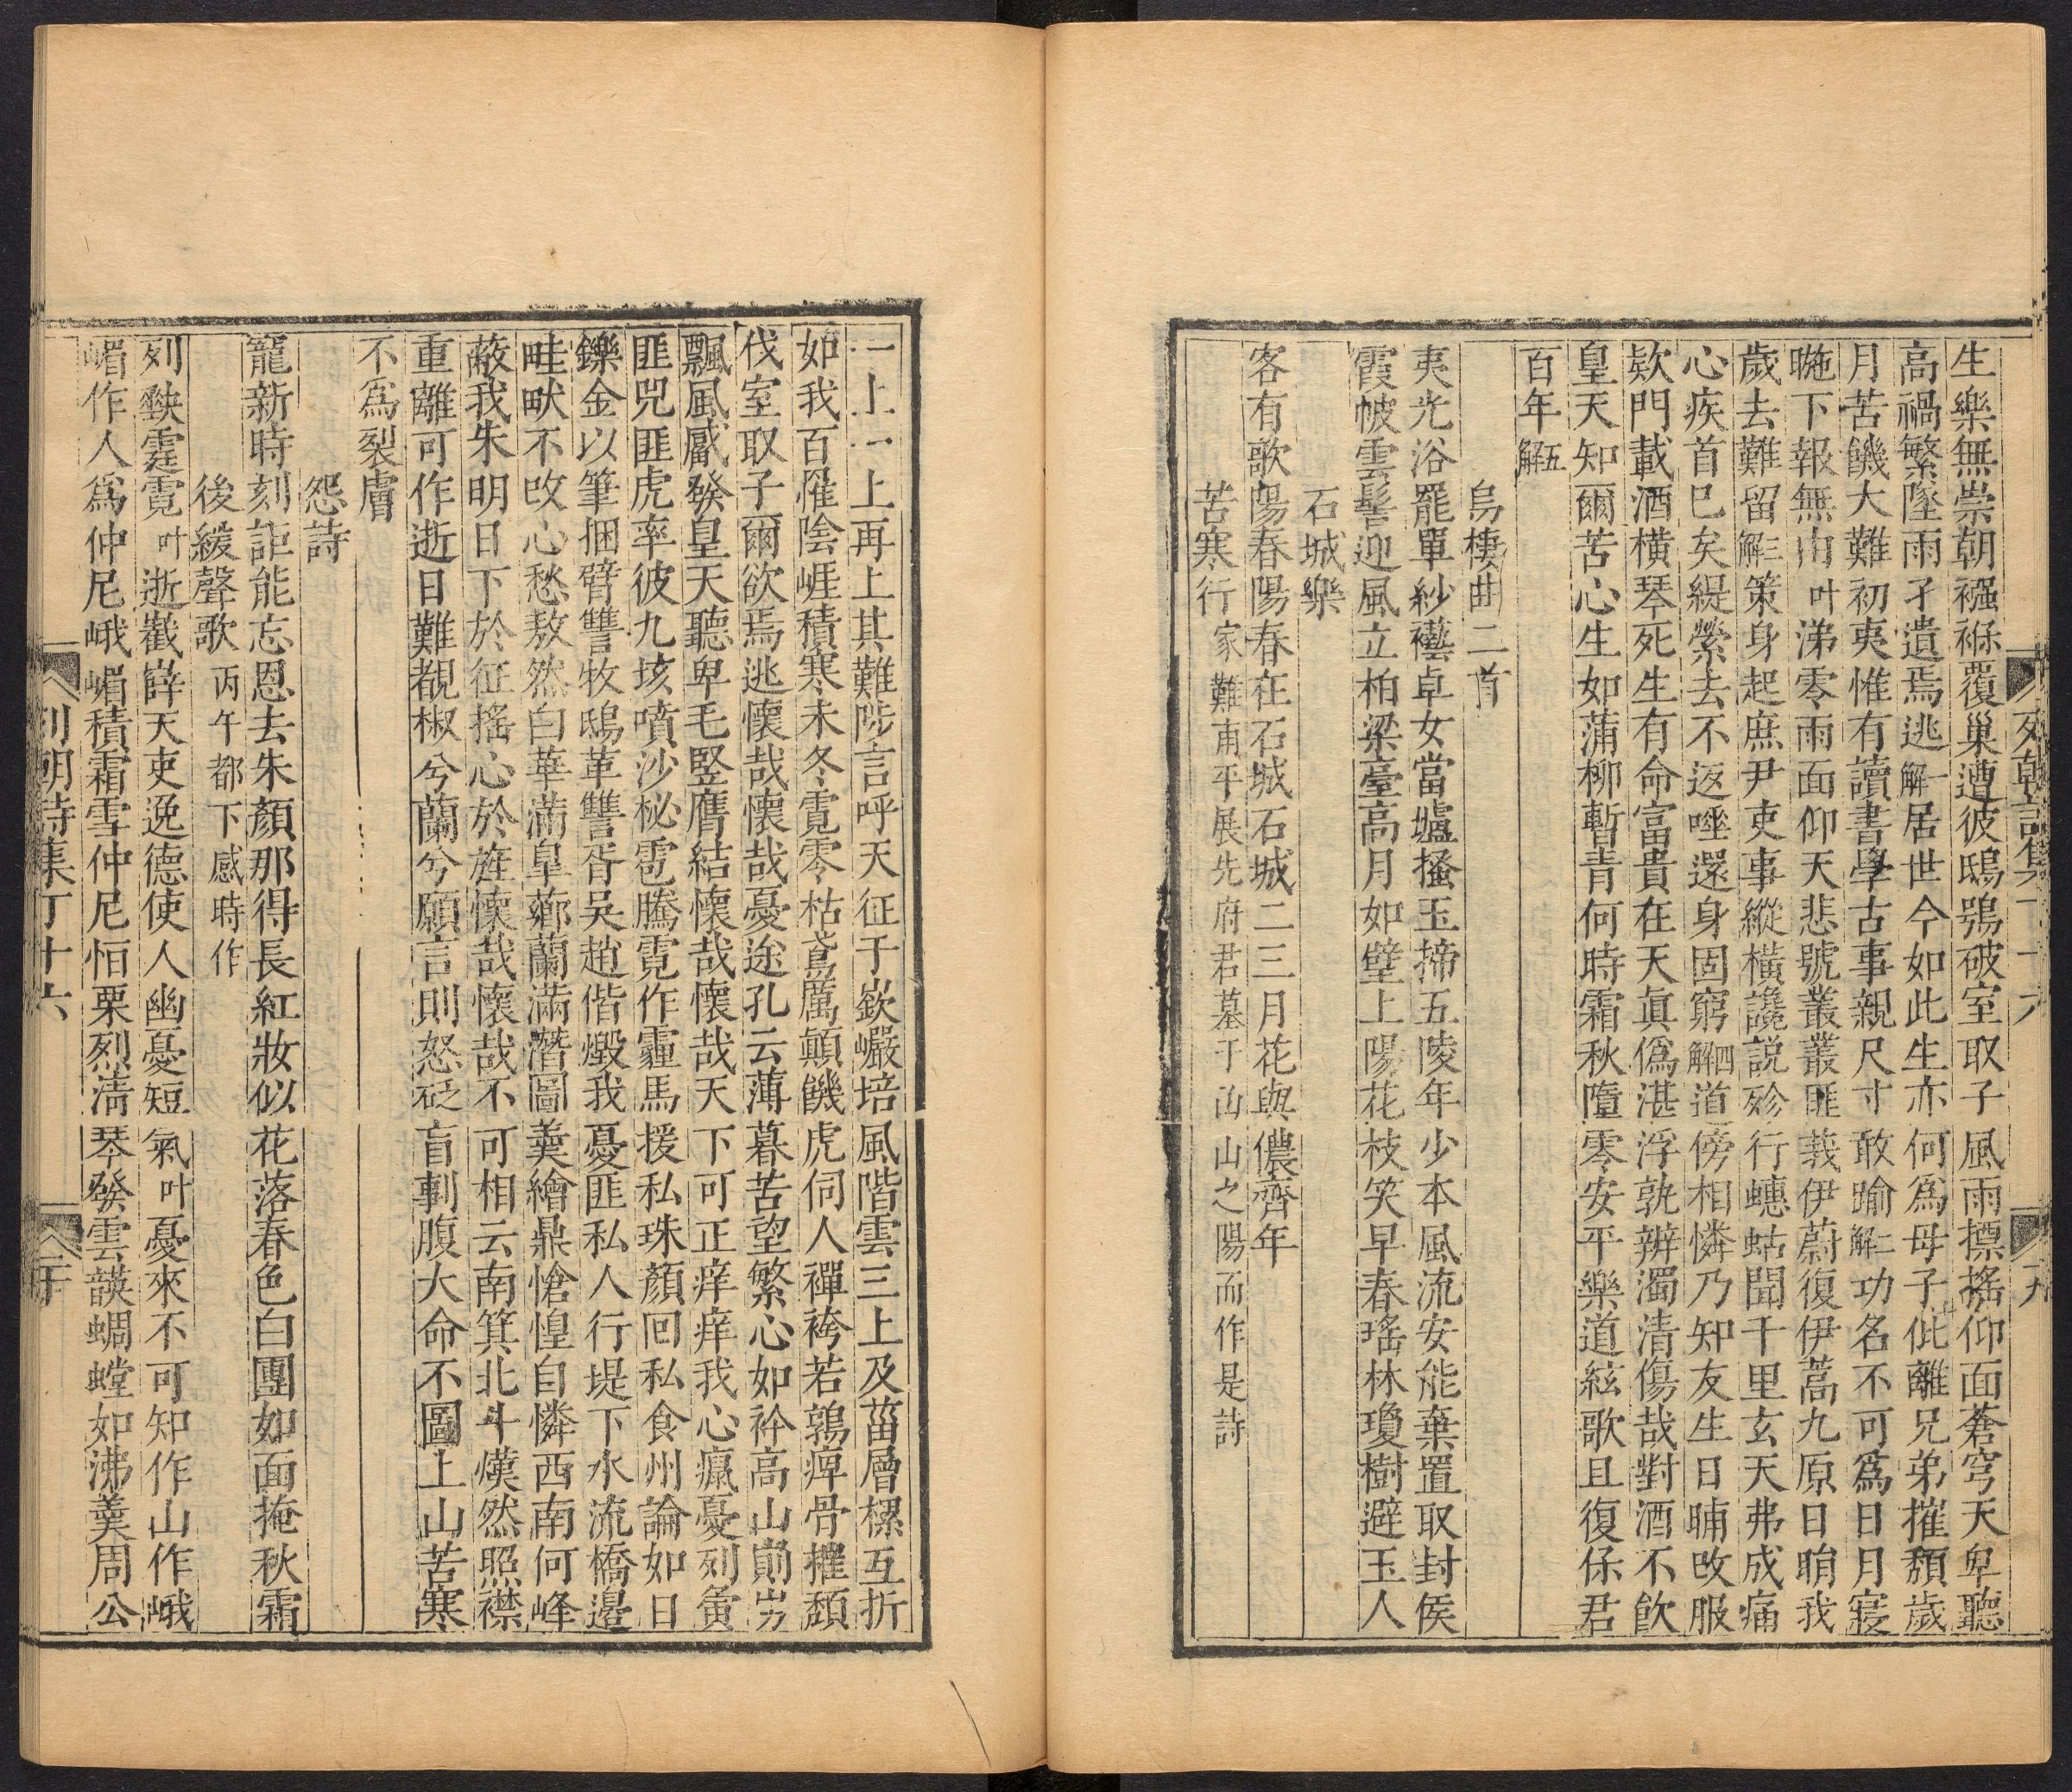 生樂無崇朝襁褓覆巢遭彼鴟鴞破室取子風雨摽搖仰面蒼穹天卑聽
高禍繁墜雨孑遺焉逃一解居世今如此生亦何為母子仳離兄弟摧頹歲
月苦饑大難初夷惟有讀書學古事親尺寸敢踰二解功名不可為日月寖
暆下報無由叶涕零雨面仰天悲號叢叢匪莪伊蔚復伊蒿九原日暔我
歲去難留三解策身起庶尹吏事縱橫讒說殄行蟪蛄聞千里玄天弗成痛
心疾首巳矣緹縈去不返唑還身固窮四解道傍相憐乃知友生日晡改服
欵門載酒橫琴死生有命富貴在天真偽湛浮孰辨濁清傷哉對酒不飲
皇天知爾苦心生如蒲柳暫青何時霜秋隕零安平樂道絃歌且復保君
百年五解
烏棲曲二首
夷光浴罷單紗褻卓女當壚搔玉揥五陵年少本風流安能棄置取封侯
霞帔雲髻迎風立柏梁臺高月如壁上陽花枝笑早春瑤林瓊樹避玉人
石城樂
客有歌陽春陽春在石城石城二三月花與儂齊年
苦寒行家難甫平展先府君墓于凷山之陽而作是詩
列朝詩集丁十六
十九
一上上一上再上其難陟言呼天征于嶔巖培風階雲三上及葘層樏互折
如我百罹陰崕積寒未冬霓零枯鳶厲顛饑虎伺人襌袴若鶉痺骨摧頹
伐室取子爾欲焉逃懷哉懷哉憂途孔云薄暮苦望繁心如衿高山巋岁
飄風觱發皇天聽卑毛豎膺結懷哉懷哉天下可正痒痒我心瘋憂列夤
匪兕匪虎率彼九垓噴沙柲雹騰霓作霾馬援私珠顏回私食州論如日
鑠金以筆捆臂讐牧鴟革讐胥吳趙偕燬我憂匪私人行堤下水流橋邊
畦畎不改心愁敖然白華滿皐薌蘭滿潛圖羮繪鼎愴惶自憐西南何峰
蔽我朱明日下於征搖心於旌懷哉懷哉不可相云南箕北斗熯然照襟
重離可作逝日難覩椒兮蘭兮願言則怒砭盲剸腹大命不圖上山苦寒
不為裂膚
怨詩
寵新時刻詎能忘恩去朱顏那得長紅妝似花落春色白團如面掩秋霜
後緩聲歌丙午都下感時作
列缺霆霓叶逝巀嶭天吏逸德使人幽憂短氣叶憂來不可知作山作峨
嵋作人為仲尼峨嵋積霜雪仲尼恒栗烈淸琴發雲韺蜩螗如沸羹周公
列朝詩集丁十六
二十